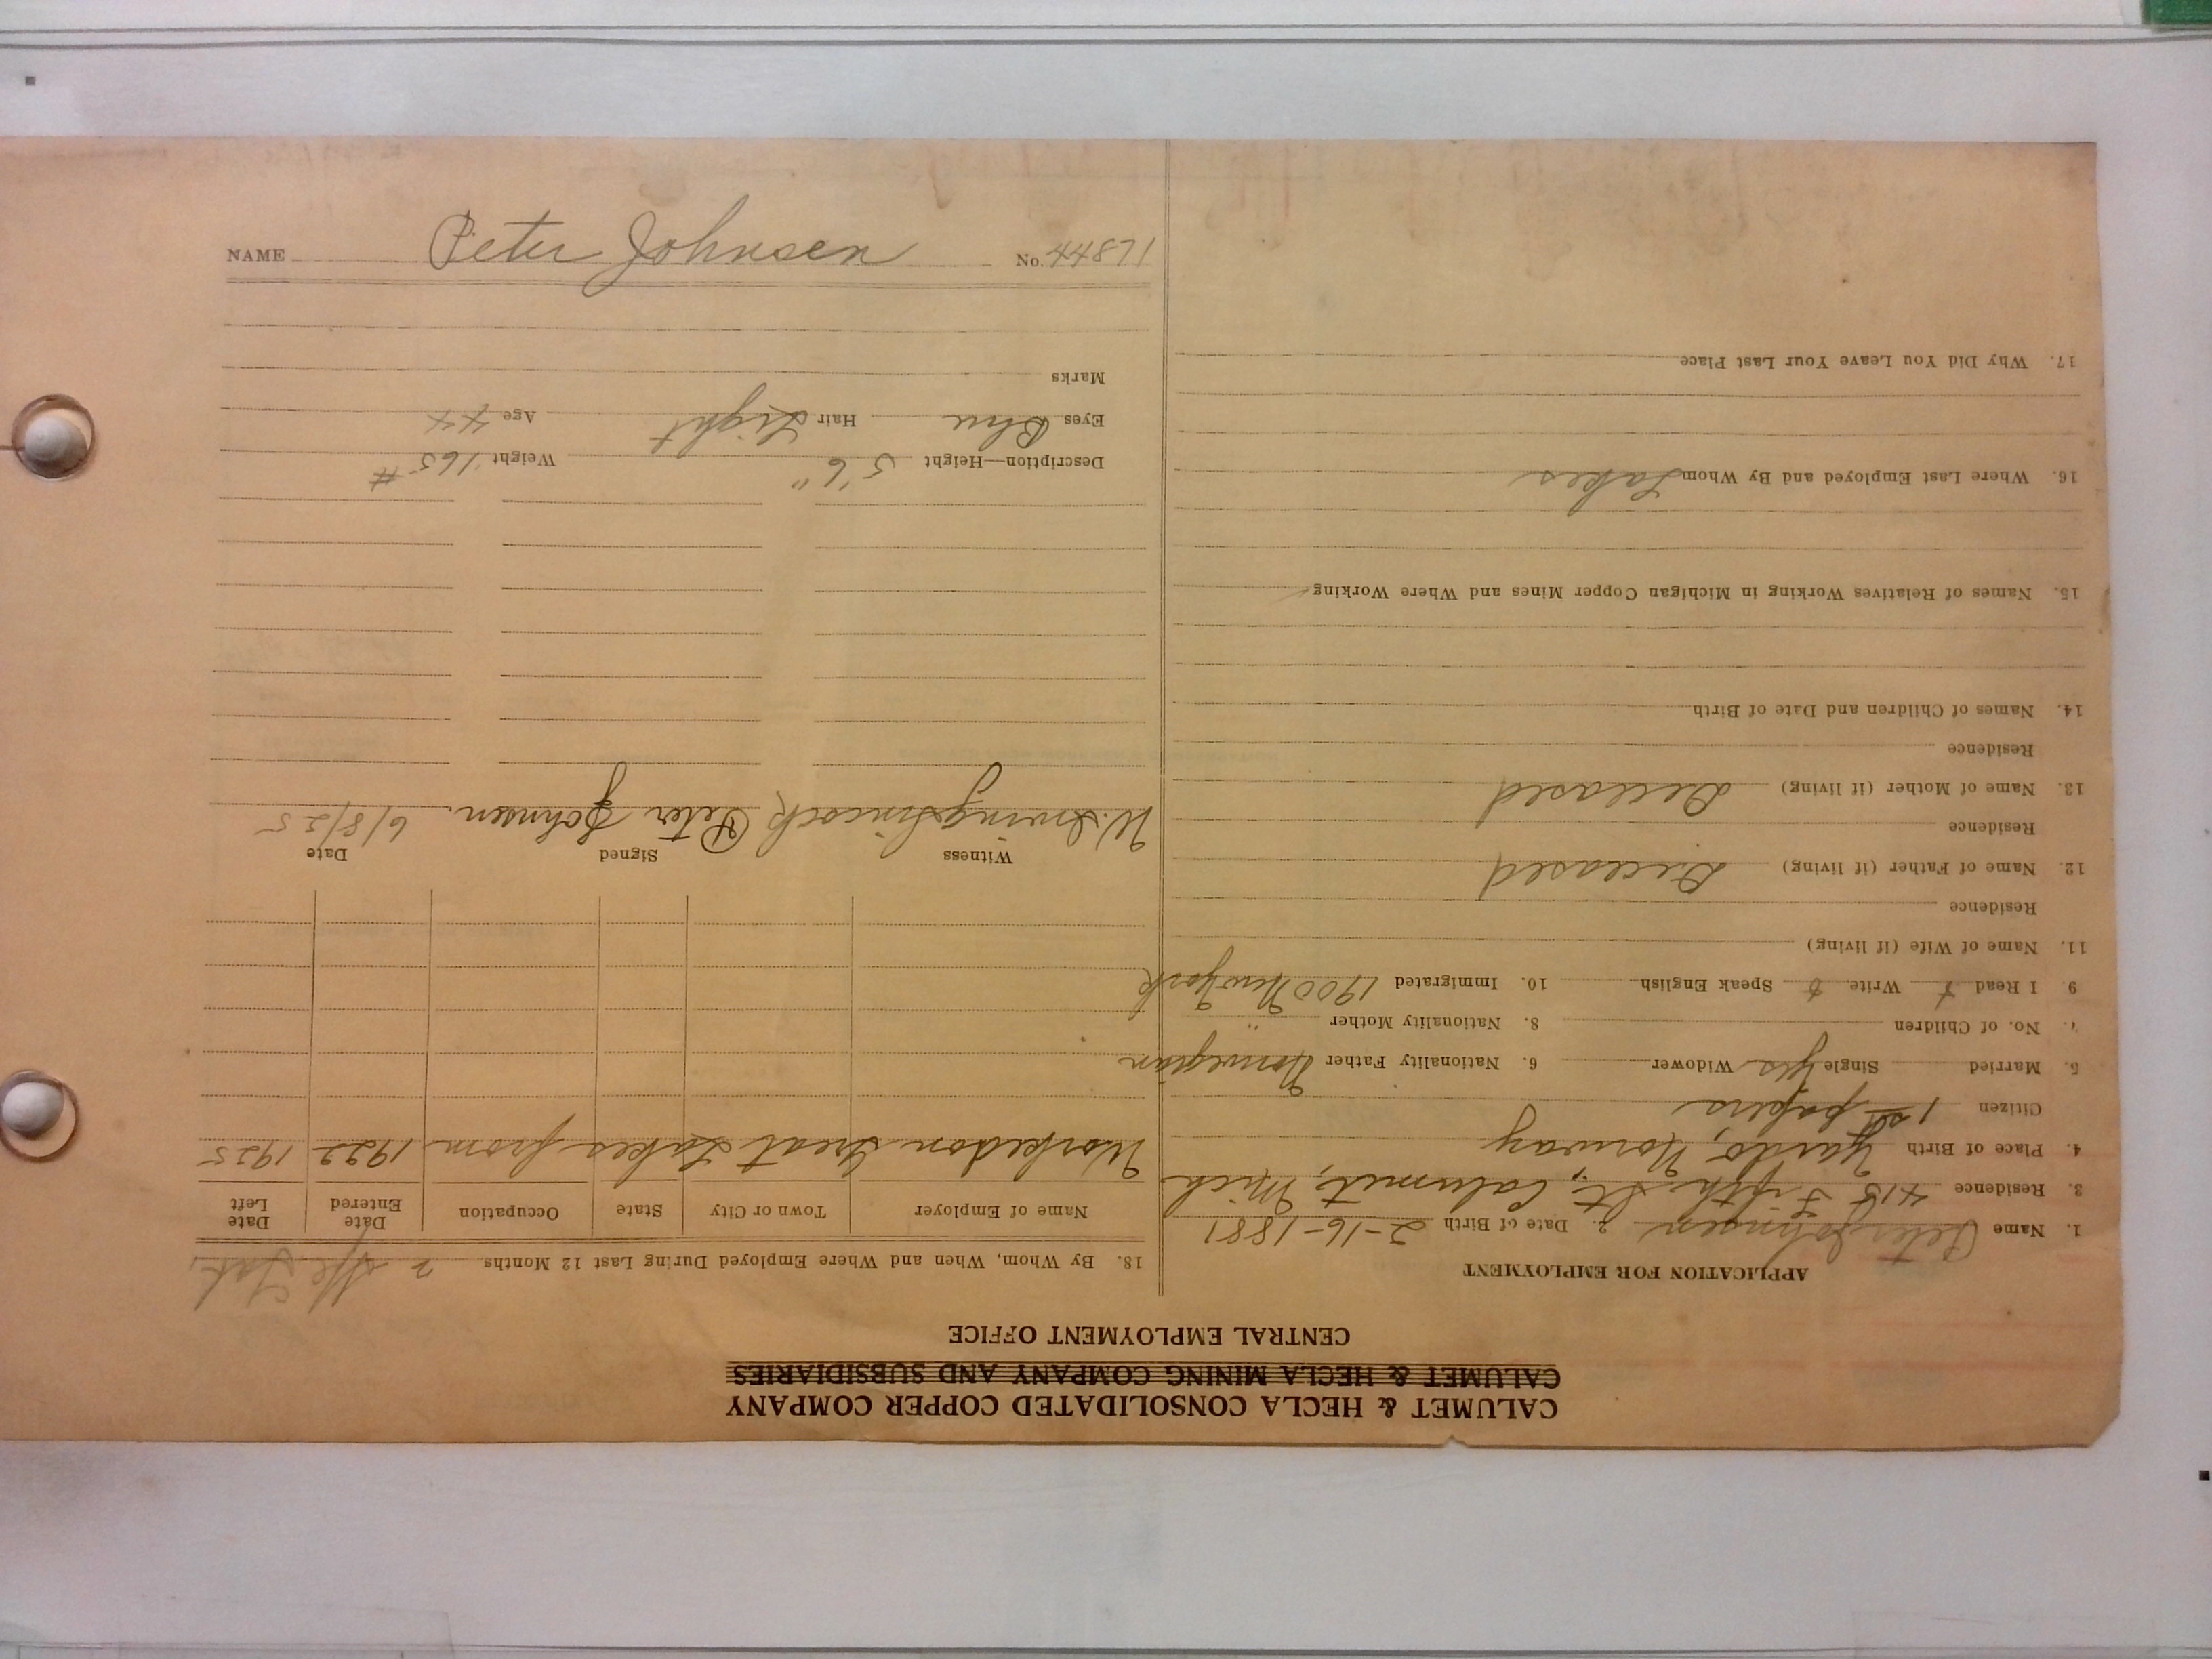 CALUMET & HECLA CONSOLIDATED COPPER COMPANY
CALUMET & HECLA MINING COMPANY AND SUBSIDIARIES
CENTRAL EMPLOYMENT OFFICE
APPLICATION FOR EMPLOYMENT
1. Name Peter Johnsen 2. Date of Birth 2-16-1881
3. Residence 415 Fifth St., Calumet, Mich
4. Place of Birth Norway
Citizen 1st papers
5. Married Single Yes Widower 6. Nationality Father Norwegian
7. No. of Children 8. Nationality Mother "
9. I Read Write Speak English 10. Immigrated 1900 New York
11. Name of Wife (if living)
Residence
12. Name of Father (if living) Deceased
Residence
13. Name of Mother (if living) Deceased
Residence
14. Names of Children and Date of Birth
15. Names of Relatives Working in Michigan Copper Mines and Where Working
16. Where Last Employed and By Whom Lakes
17. Why Did You Leave Your Last Place
18. By Whom, When and Where Employed During Last 12 Months
Name of Employer Town or City State Occupation Date Entered Date Left
Worked on Great Lakes from 1922 1925
Witness Signed Date
W. Irving Peter Johnsen. 6/8/25
Description—Height 5'6" Weight 165#
Eyes Blue Hair Light Age 44
Marks
NAME Peter Johnsen No. 44871